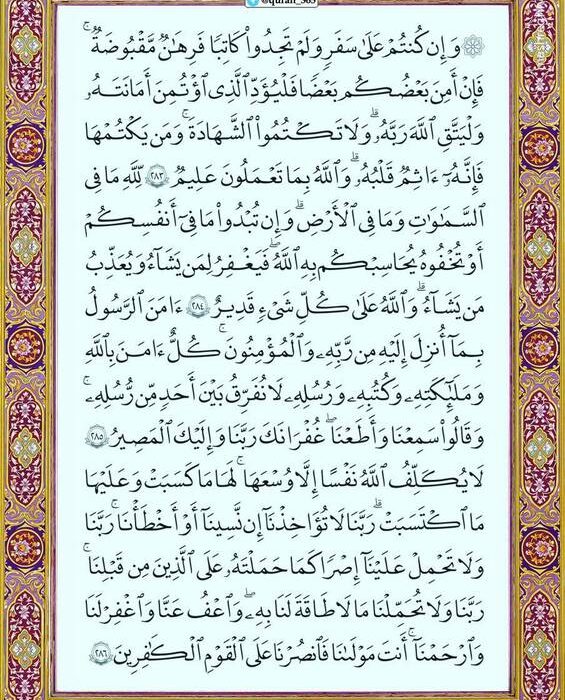 @quran_365
۞ وَإِن كُنتُمْ عَلَىٰ سَفَرٍ وَلَمْ تَجِدُوا۟ كَاتِبًا فَرِهَـٰنٌ مَّقْبُوضَةٌ ۖ
فَإِنْ أَمِنَ بَعْضُكُم بَعْضًا فَلْيُؤَدِّ ٱلَّذِى ٱؤْتُمِنَ أَمَـٰنَتَهُۥ
وَلْيَتَّقِ ٱللَّهَ رَبَّهُۥ ۗ وَلَا تَكْتُمُوا۟ ٱلشَّهَـٰدَةَ ۚ وَمَن يَكْتُمْهَا
فَإِنَّهُۥٓ ءَاثِمٌ قَلْبُهُۥ ۗ وَٱللَّهُ بِمَا تَعْمَلُونَ عَلِيمٌ ٢٨٣ لِّلَّهِ مَا فِى
ٱلسَّمَـٰوَٰتِ وَمَا فِى ٱلْأَرْضِ ۗ وَإِن تُبْدُوا۟ مَا فِىٓ أَنفُسِكُمْ
أَوْ تُخْفُوهُ يُحَاسِبْكُم بِهِ ٱللَّهُ ۖ فَيَغْفِرُ لِمَن يَشَآءُ وَيُعَذِّبُ
مَن يَشَآءُ ۗ وَٱللَّهُ عَلَىٰ كُلِّ شَىْءٍ قَدِيرٌ ٢٨٤ ءَامَنَ ٱلرَّسُولُ
بِمَآ أُنزِلَ إِلَيْهِ مِن رَّبِّهِۦ وَٱلْمُؤْمِنُونَ ۚ كُلٌّ ءَامَنَ بِٱللَّهِ
وَمَلَـٰٓئِكَتِهِۦ وَكُتُبِهِۦ وَرُسُلِهِۦ لَا نُفَرِّقُ بَيْنَ أَحَدٍ مِّن رُّسُلِهِۦ ۚ
وَقَالُوا۟ سَمِعْنَا وَأَطَعْنَا ۖ غُفْرَانَكَ رَبَّنَا وَإِلَيْكَ ٱلْمَصِيرُ ٢٨٥
لَا يُكَلِّفُ ٱللَّهُ نَفْسًا إِلَّا وُسْعَهَا ۚ لَهَا مَا كَسَبَتْ وَعَلَيْهَا
مَا ٱكْتَسَبَتْ ۗ رَبَّنَا لَا تُؤَاخِذْنَآ إِن نَّسِينَآ أَوْ أَخْطَأْنَا ۚ رَبَّنَا
وَلَا تَحْمِلْ عَلَيْنَآ إِصْرًا كَمَا حَمَلْتَهُۥ عَلَى ٱلَّذِينَ مِن قَبْلِنَا ۚ
رَبَّنَا وَلَا تُحَمِّلْنَا مَا لَا طَاقَةَ لَنَا بِهِۦ ۖ وَٱعْفُ عَنَّا وَٱغْفِرْ لَنَا
وَٱرْحَمْنَآ ۚ أَنتَ مَوْلَىٰنَا فَٱنصُرْنَا عَلَى ٱلْقَوْمِ ٱلْكَـٰفِرِينَ ٢٨٦